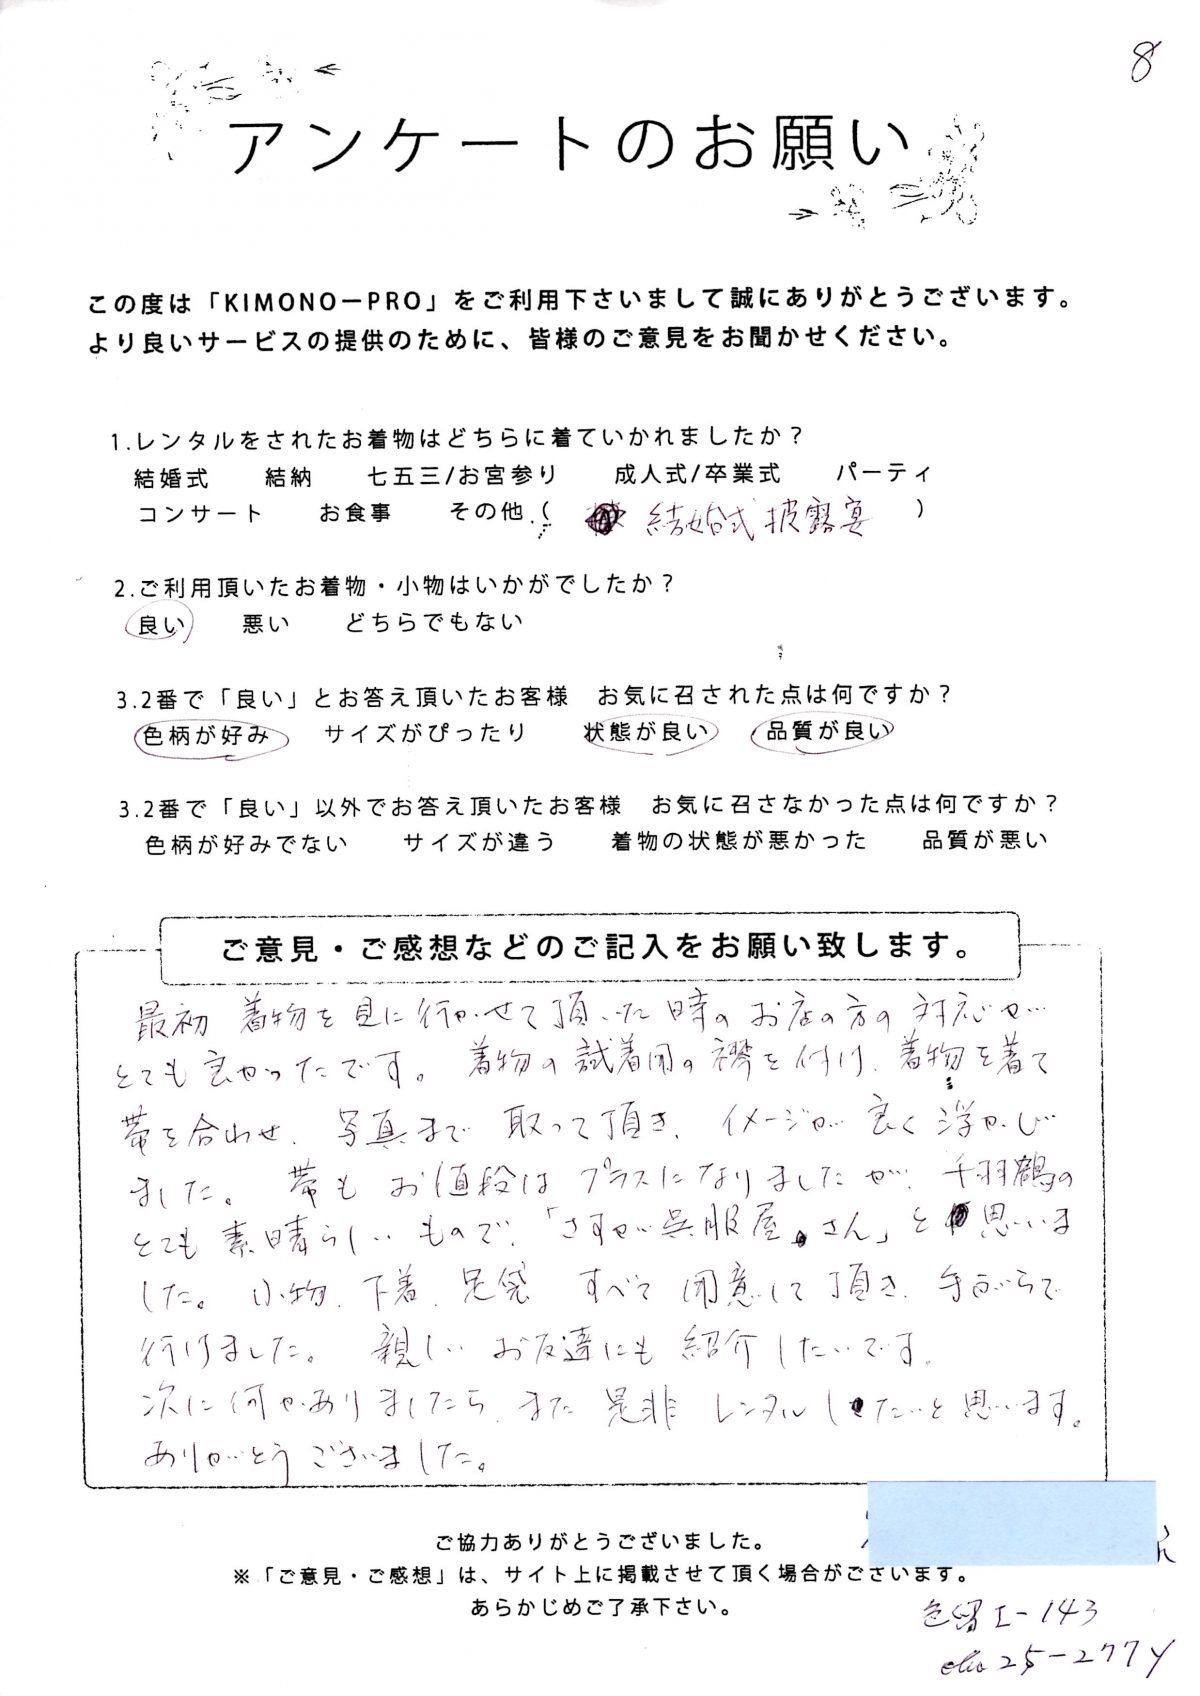 8
アンケートのお願い
この度は「KIMONO－PRO」をご利用下さいまして誠にありがとうございます。
より良いサービスの提供のために、皆様のご意見をお聞かせください。
1.レンタルをされたお着物はどちらに着ていかれましたか？
結婚式 結納 七五三/お宮参り 成人式/卒業式 パーティ
コンサート お食事 その他（ 結婚式披露宴 ）
2.ご利用頂いたお着物・小物はいかがでしたか？
良い 悪い どちらでもない
3.2番で「良い」とお答え頂いたお客様 お気に召された点は何ですか？
色柄が好み サイズがぴったり 状態が良い 品質が良い
3.2番で「良い」以外でお答え頂いたお客様 お気に召さなかった点は何ですか？
色柄が好みでない サイズが違う 着物の状態が悪かった 品質が悪い
ご意見・ご感想などのご記入をお願い致します。
最初 着物を見に行かせて頂いた時のお店の方の対応が
とても良かったです。着物の試着用の襟を付け、着物を着て
帯を合わせ、写真まで 取って頂き、イメージが良く浮かび
ました。帯もお値段はプラスになりましたが、千羽鶴の
とても素晴らしいもので、「さすが呉服屋さん」と思いま
した。小物、下着、足袋 すべて用意して頂き、手ぶらで
行けました。親しいお友達にも紹介したいです。
次に何かありましたら、また是非レンタルしたいと思います。
ありがとうございました。
ご協力ありがとうございました。
※「ご意見・ご感想」は、サイト上に掲載させて頂く場合がございます。
あらかじめご了承下さい。
色留I-143
25-277Y